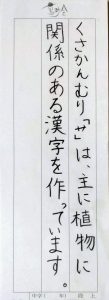 くさかんむり「艹」は、主に植物に
関係のある漢字を作っています。